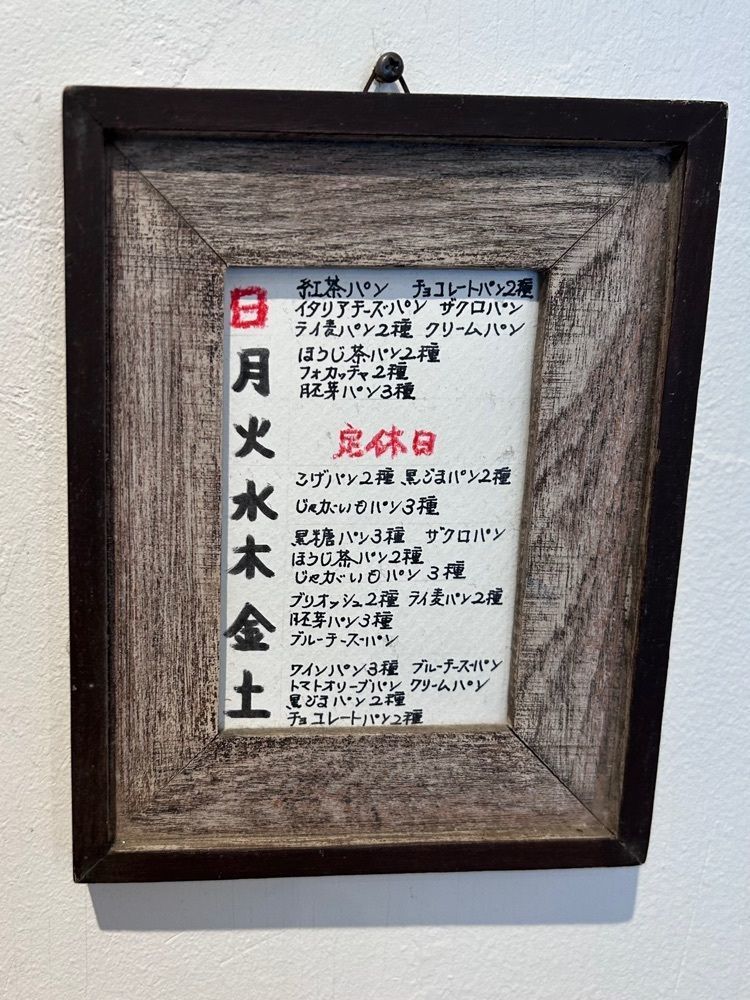 日
紅茶パン チョコレートパン2種
イタリアチーズパン ザクロパン
ライ麦パン2種 クリームパン
月
ほうじ茶パン2種
フォカッチャ2種
胚芽パン3種
火
定休日
水
こげパン2種 黒ごまパン2種
じゃがいもパン3種
木
黒糖パン3種 ザクロパン
ほうじ茶パン2種
じゃがいもパン3種
金
ブリオッシュ2種 ライ麦パン2種
胚芽パン3種
ブルーチーズパン
土
ワインパン3種 ブルーチーズパン
トマトオリーブパン クリームパン
黒ごまパン2種
チョコレートパン2種